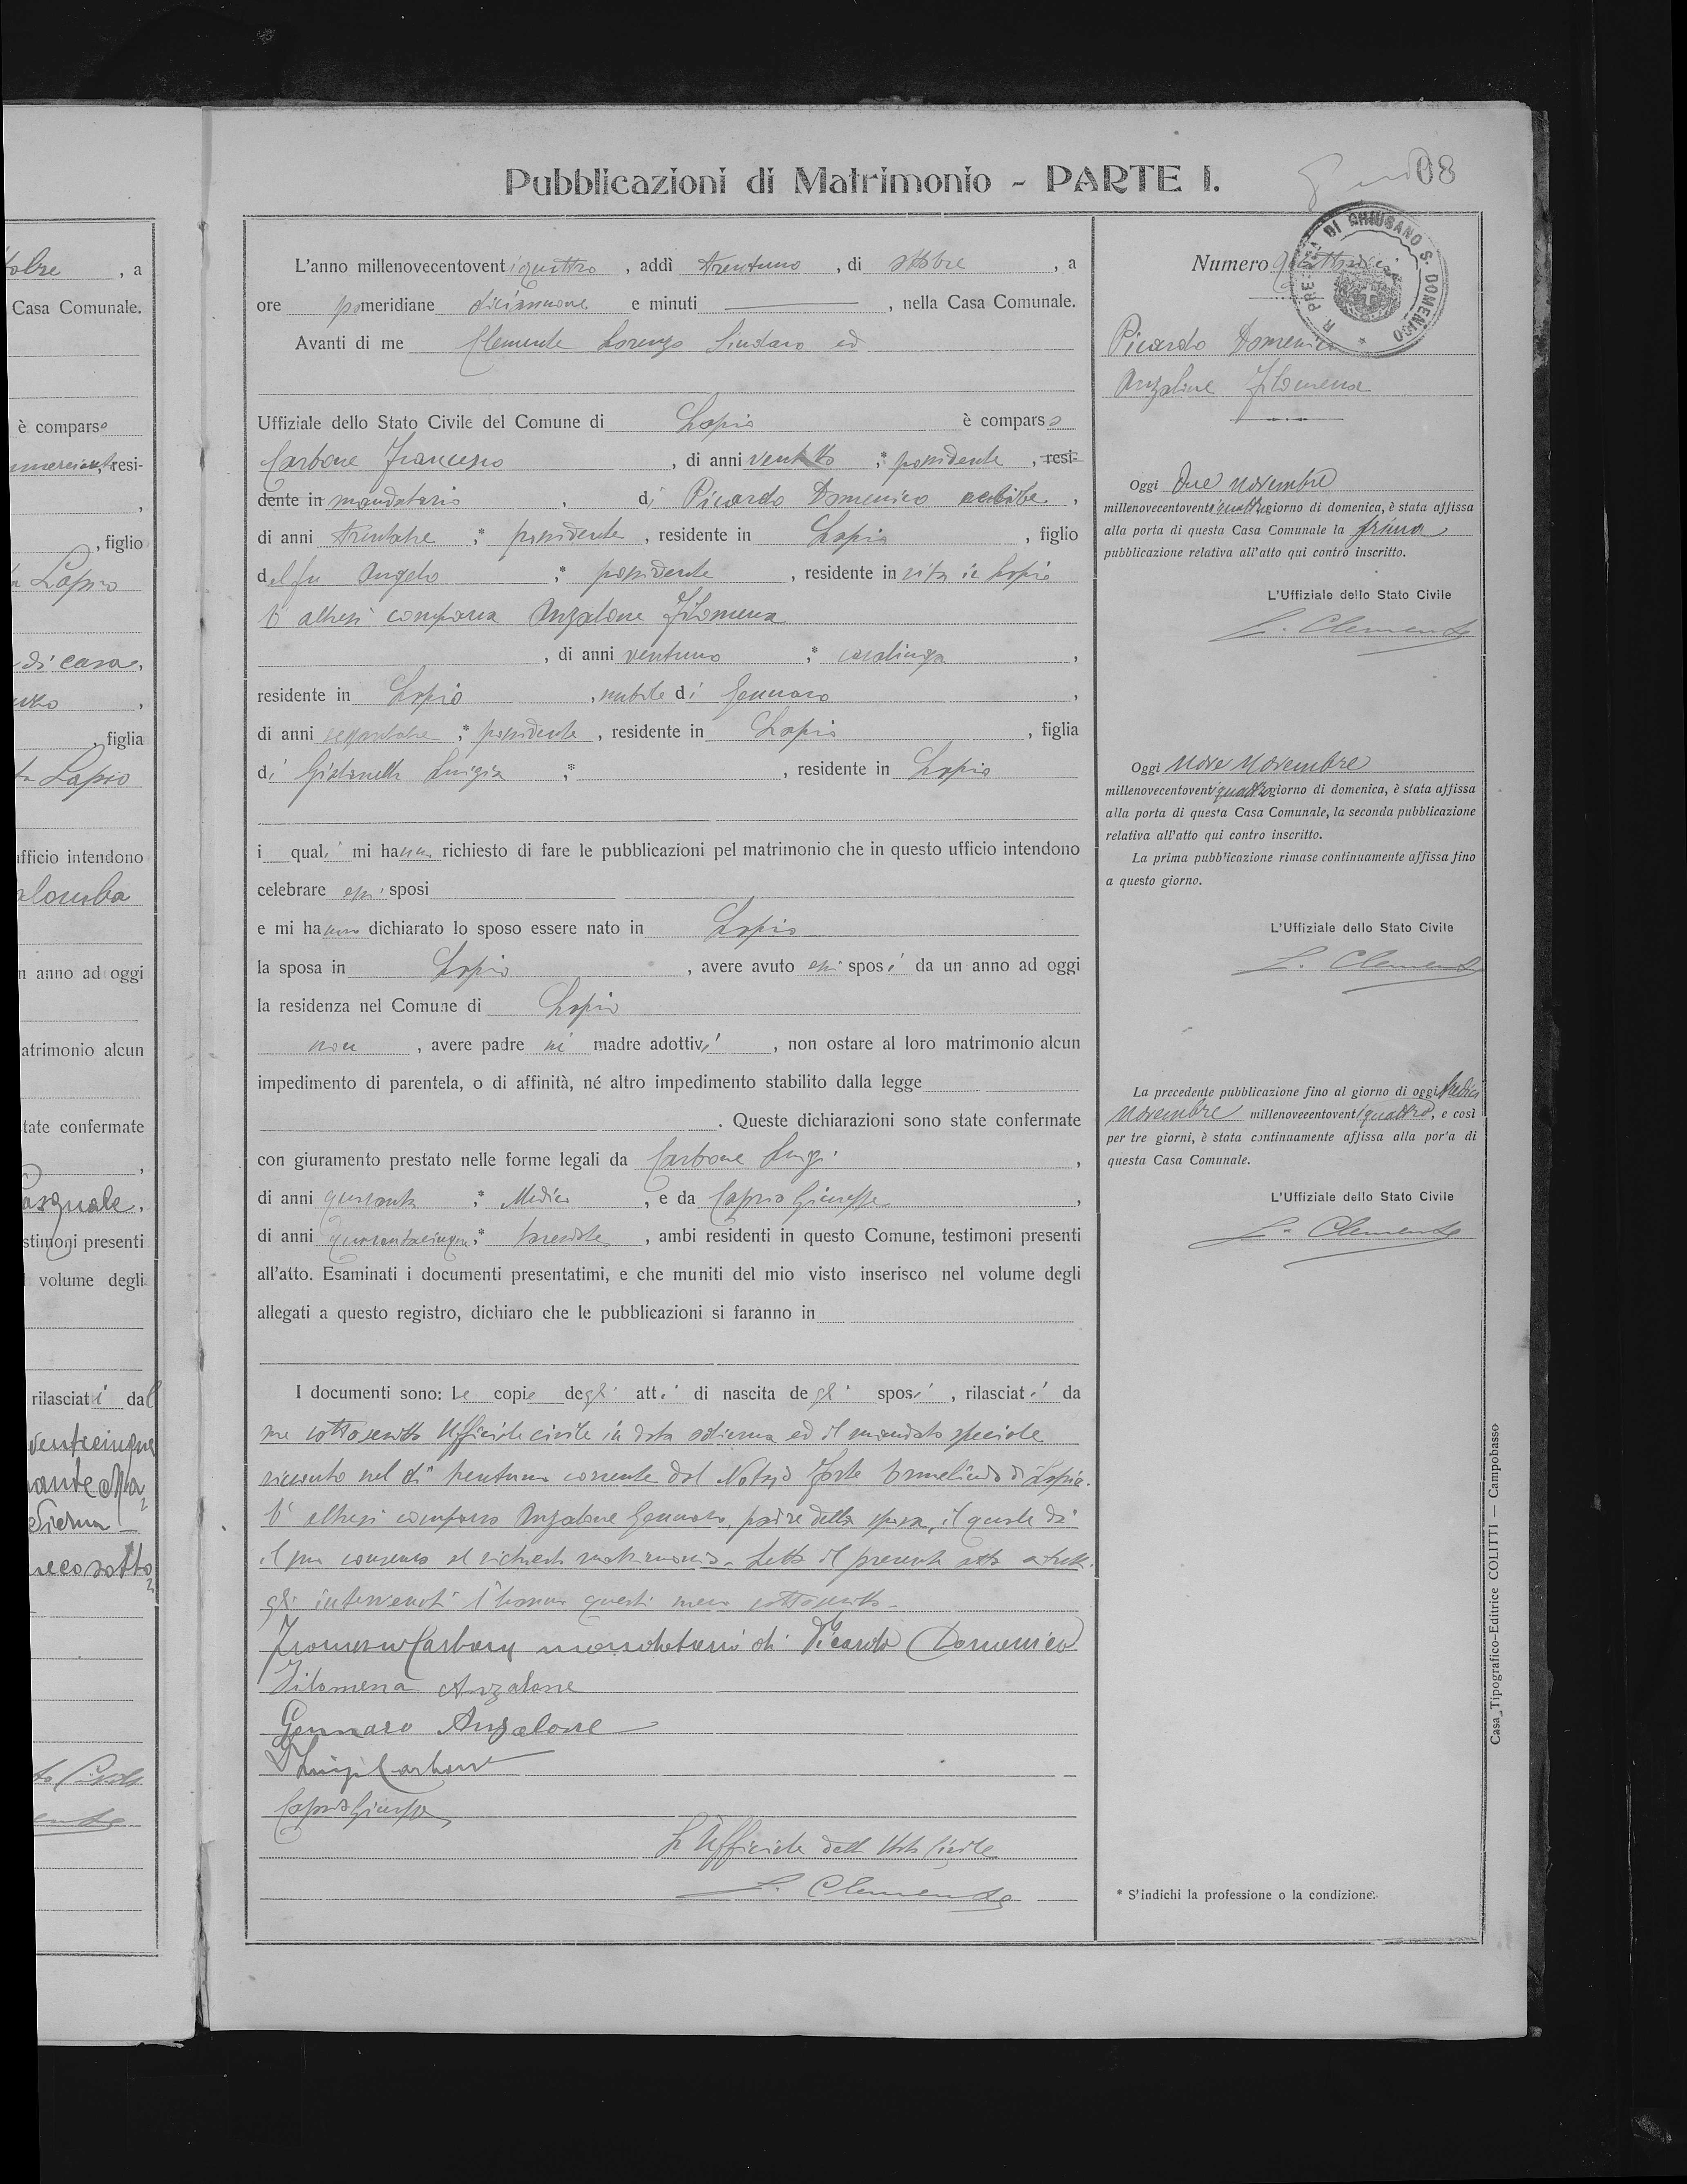 Pubblicazioni di Matrimonio - PARTE I.
08
tobre, a
Casa Comunale.
è comparso
resi-
, figlio
Lapio
di casa,
, figlia
Lapio
ufficio intendono
alomba
n anno ad oggi
atrimonio alcun
tate confermate
asquale,
stimoni presenti
volume degli
rilasciati dal
venticinque
neo sotto
L'anno millenovecentoventiquattro, addì trentuno, di ottobre, a
ore pomeridiane diciannove e minuti, nella Casa Comunale.
Avanti di me Clemente Lorenzo Sindaco ed
Uffiziale dello Stato Civile del Comune di Lapio è comparso
Carbone Francesco, di anni ventotto * possidente, resi-
dente in mandatario, di Picardo Domenico celibe,
di anni trentatre * possidente, residente in Lapio, figlio
del fu Angelo * possidente, residente in vita in Lapio
È altresì comparsa Anzalone Filomena
, di anni ventuno * casalinga,
residente in Lapio, nubile di Gennaro,
di anni sessantatre * possidente, residente in Lapio, figlia
di Luigia * , residente in Lapio
i quali mi hanno richiesto di fare le pubblicazioni pel matrimonio che in questo ufficio intendono
celebrare essi sposi
e mi hanno dichiarato lo sposo essere nato in Lapio
la sposa in Lapio, avere avuto essi sposi da un anno ad oggi
la residenza nel Comune di Lapio
non, avere padre nè madre adottivi, non ostare al loro matrimonio alcun
impedimento di parentela, o di affinità, né altro impedimento stabilito dalla legge
. Queste dichiarazioni sono state confermate
con giuramento prestato nelle forme legali da Carbone Luigi,
di anni quaranta * Medico, e da Caprio Giuseppe,
di anni quarantacinque * , ambi residenti in questo Comune, testimoni presenti
all'atto. Esaminati i documenti presentatimi, e che muniti del mio visto inserisco nel volume degli
allegati a questo registro, dichiaro che le pubblicazioni si faranno in
I documenti sono: Le copie degli atti di nascita degli sposi, rilasciati da
me sottoscritto Ufficiale civile in data odierna ed il mandato speciale
ricevuto nel dì trentuno corrente dal Notaio Forte Ermelindo di Lapio.
È altresì comparso Anzalone Gennaro, padre della sposa, il quale dà
il suo consenso al richiesto matrimonio. Letto il presente atto a tutti
gli intervenuti l'hanno questi meco sottoscritto -
Francesco Carbone mandatario di Picardo Domenico
Filomena Anzalone
Gennaro Anzalone
Luigi Carbone
Caprio Giuseppe
L'Ufficiale dello Stato Civile
L. Clemente
Numero quattordici
R. PRETURA DI CHIUSANO S. DOMENICO
Picardo Domenico
Anzalone Filomena
Oggi due novembre
millenovecentoventiquattro giorno di domenica, è stata affissa
alla porta di questa Casa Comunale la prima
pubblicazione relativa all'atto qui contro inscritto.
L'Uffiziale dello Stato Civile
L. Clemente
Oggi nove novembre
millenovecentoventiquattro giorno di domenica, è stata affissa
alla porta di questa Casa Comunale, la seconda pubblicazione
relativa all'atto qui contro inscritto.
La prima pubblicazione rimase continuamente affissa fino
a questo giorno.
L'Uffiziale dello Stato Civile
L. Clemente
La precedente pubblicazione fino al giorno di oggi dodici
novembre millenovecentoventiquattro, e così
per tre giorni, è stata continuamente affissa alla porta di
questa Casa Comunale.
L'Uffiziale dello Stato Civile
L. Clemente
* S'indichi la professione o la condizione.
Casa Tipografico-Editrice COLITTI — Campobasso